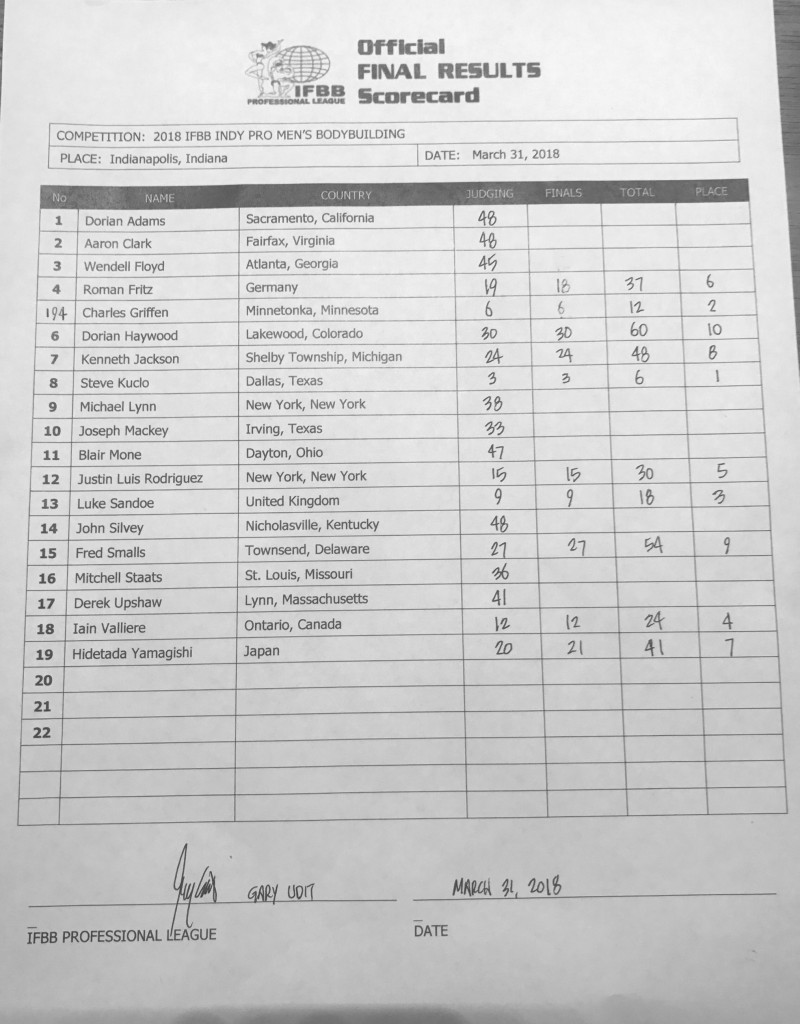 IFBB
PROFESSIONAL LEAGUE
Official
FINAL RESULTS
Scorecard
COMPETITION: 2018 IFBB INDY PRO MEN'S BODYBUILDING
PLACE: Indianapolis, Indiana DATE: March 31, 2018
No NAME COUNTRY JUDGING FINALS TOTAL PLACE
1 Dorian Adams Sacramento, California 48
2 Aaron Clark Fairfax, Virginia 48
3 Wendell Floyd Atlanta, Georgia 45
4 Roman Fritz Germany 19 18 37 6
194 Charles Griffen Minnetonka, Minnesota 6 6 12 2
6 Dorian Haywood Lakewood, Colorado 30 30 60 10
7 Kenneth Jackson Shelby Township, Michigan 24 24 48 8
8 Steve Kuclo Dallas, Texas 3 3 6 1
9 Michael Lynn New York, New York 38
10 Joseph Mackey Irving, Texas 33
11 Blair Mone Dayton, Ohio 47
12 Justin Luis Rodriguez New York, New York 15 15 30 5
13 Luke Sandoe United Kingdom 9 9 18 3
14 John Silvey Nicholasville, Kentucky 48
15 Fred Smalls Townsend, Delaware 27 27 54 9
16 Mitchell Staats St. Louis, Missouri 36
17 Derek Upshaw Lynn, Massachusetts 41
18 Iain Valliere Ontario, Canada 12 12 24 4
19 Hidetada Yamagishi Japan 20 21 41 7
20
21
22
GARY UDIT MARCH 31, 2018
IFBB PROFESSIONAL LEAGUE DATE